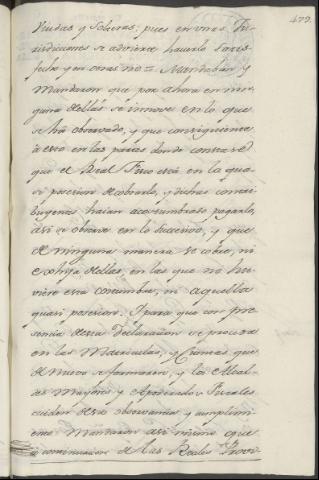 479.
Viudas y Solteras; pues en unas Ju-
risdicciones se advierte haverlo satis-
fecho y en otras no = Mandaban y
Mandaron que por ahora en nin-
guna de ellas se innove en lo que
se ha observado, y que consiguiente
à esto en las partes donde conste
que el Real Fisco está en la qua-
si posesion de cobrarlo, y dichas contri-
buyentes haian acostumbrado pagarlo,
asi se observe en lo succesivo, y que
de ninguna manera se cobre, ni
exhija de ellas, en las que no hu-
viere esta costumbre, ni aquella
quasi posesion. Y para que con pre-
sencia de esta Declaracion se proceda
en las Matriculas, y Quentas que
de nuevo se formaren, y los Alcal-
des Mayores y Apoderados Fiscales
cuiden de su observancia y cumplimi-
ento Mandaron asi mismo que
à continuacion de las Reales Provi-